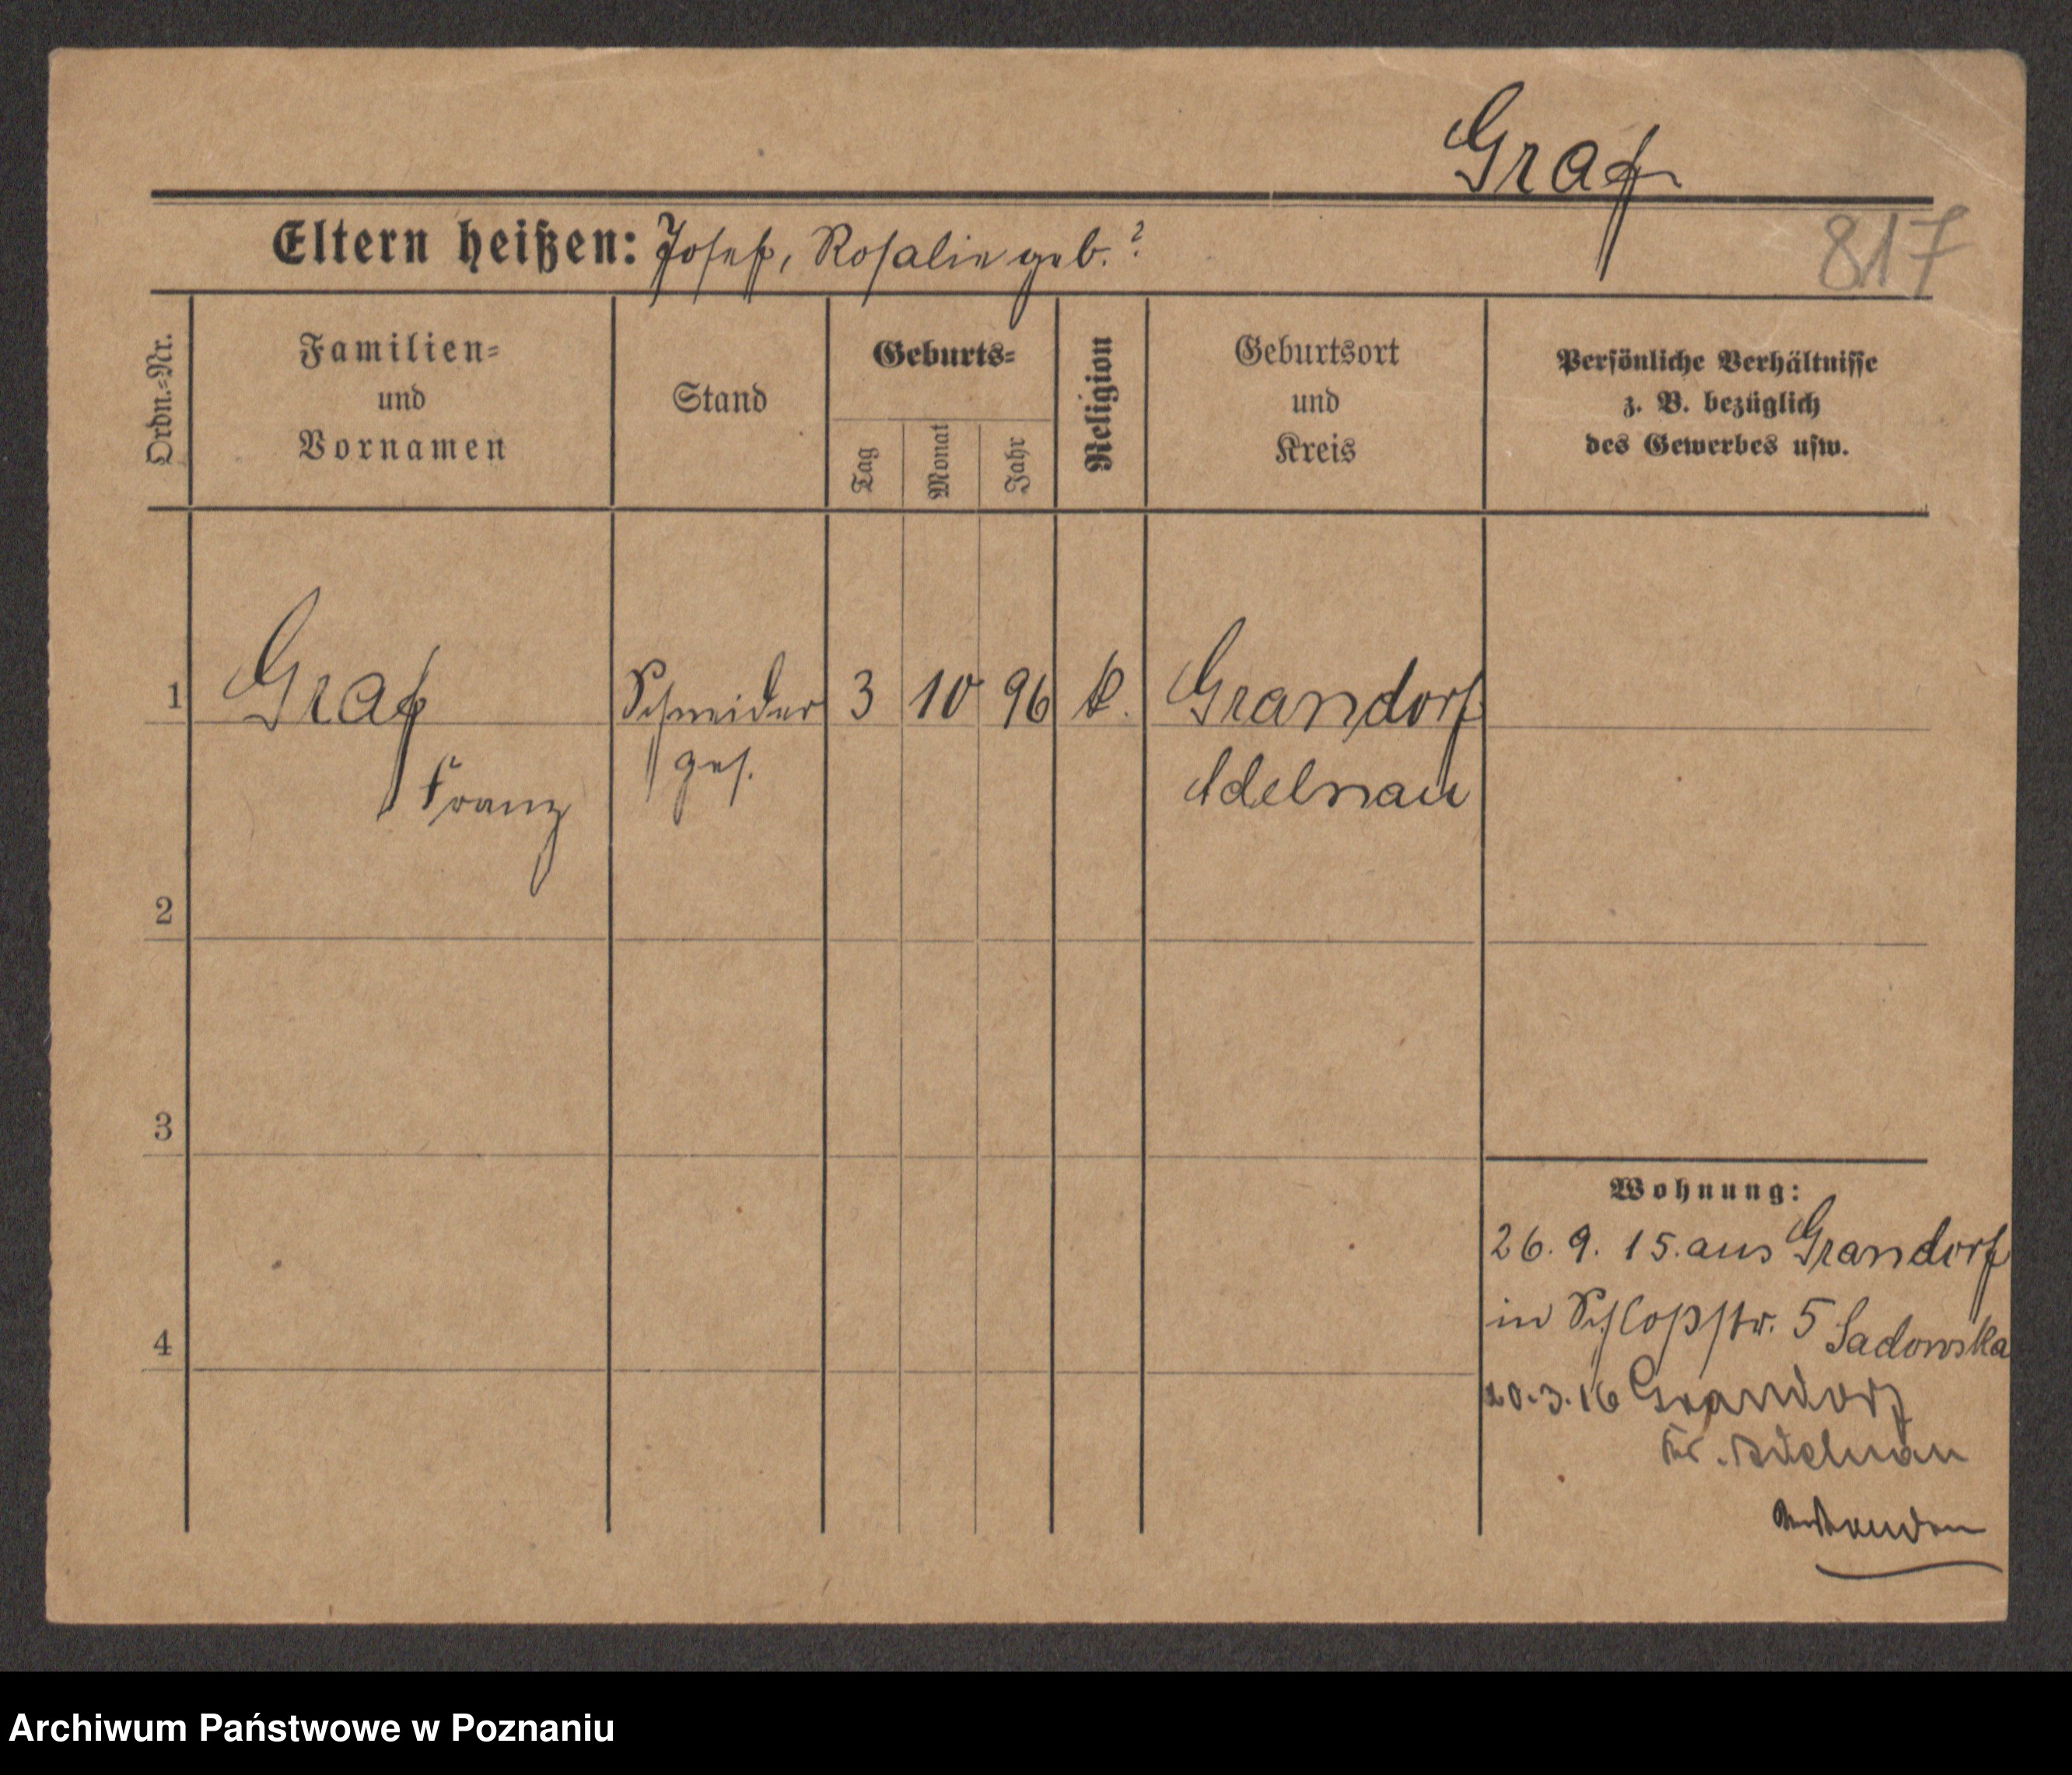 Graf
817
Eltern heißen: Josef, Rosalie geb. ?
Ordn.-Nr.
Familien-
und
Vornamen
Stand
Geburts-
Tag
Monat
Jahr
Religion
Geburtsort
und
Kreis
Persönliche Verhältnisse
z. B. bezüglich
des Gewerbes usw.
1 Graf Schneider 3 10 96 k. Grandorf
Franz ges. Adelnau
2
3
4
Wohnung:
26. 9. 15. aus Grandorf
in Schloßstr. 5 Sadowska
20.3.16 Grandorf
Kr. Adelnau
Archiwum Państwowe w Poznaniu